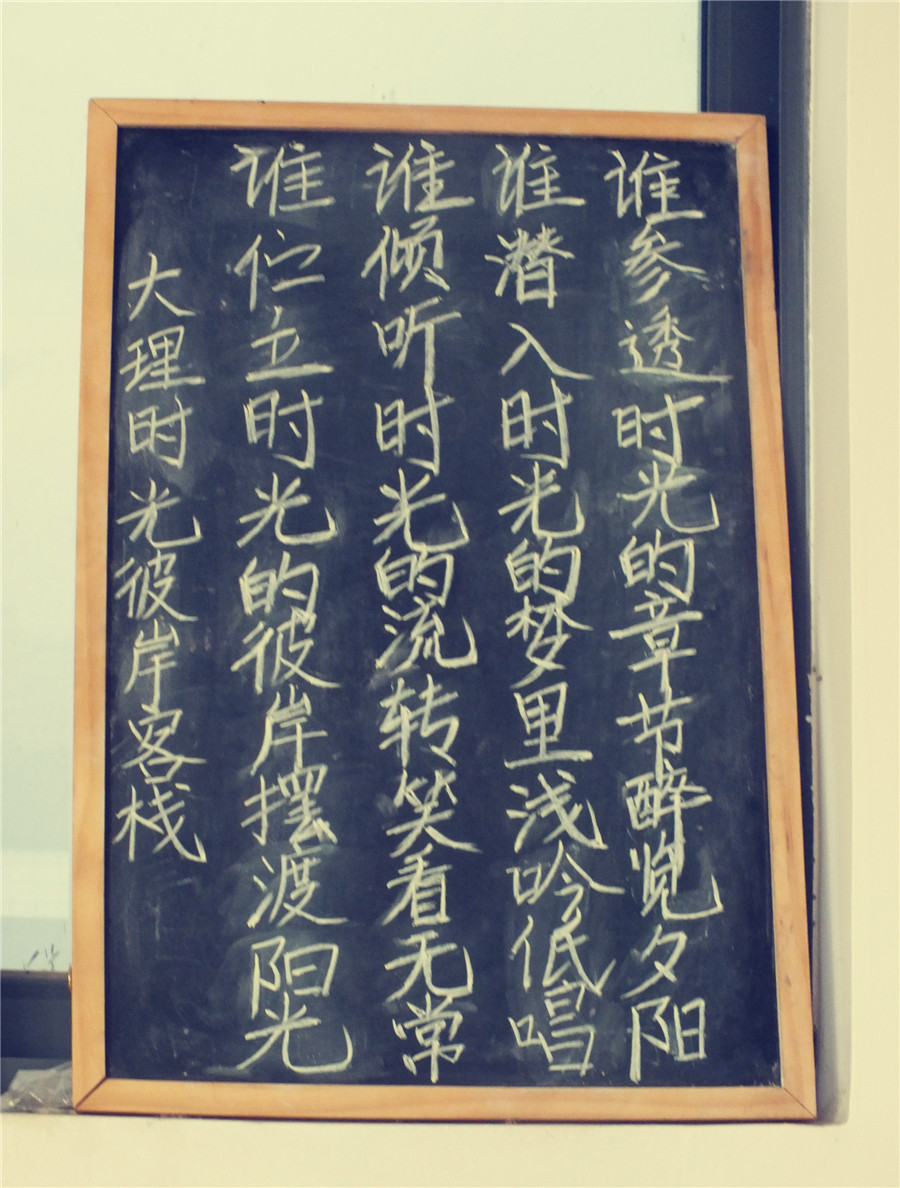 谁参透时光的章节醉览夕阳
谁潜入时光的梦里浅吟低唱
谁倾听时光的流转笑看无常
谁伫立时光的彼岸摆渡阳光
大理时光彼岸客栈